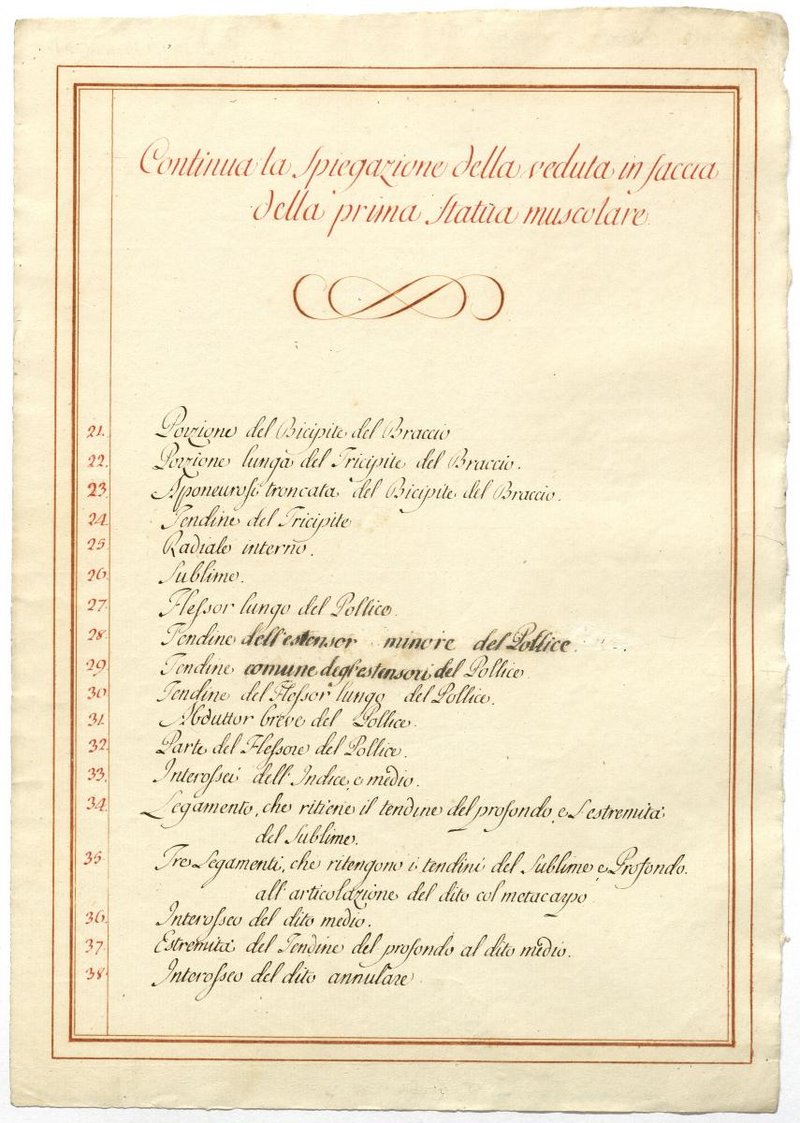 Continua la Spiegazione della veduta in faccia
della prima Statua muscolare
21. Porzione del Bicipite del Braccio
22. Porzione lunga del Tricipite del Braccio.
23. Aponeurosi troncata del Bicipite del Braccio.
24. Tendine del Tricipite
25. Radiale interno.
26. Sublime.
27. Flessor lungo del Pollice.
28. Tendine dell'estensor minore del Pollice
29. Tendine comune degl'estensori del Pollice.
30. Tendine del Flessor lungo del Pollice.
31. Abduttor breve del Pollice.
32. Parte del Flessore del Pollice.
33. Interossei dell'Indice, e medio.
34. Legamento, che ritiene il tendine del profondo, e l'estremità
del Sublime.
35. Tre Legamenti, che ritengono i tendini del Sublime e Profondo.
all'articolazione del dito col metacarpo
36. Interosseo del dito medio.
37. Estremità del Tendine del profondo al dito medio.
38. Interosseo del dito annulare